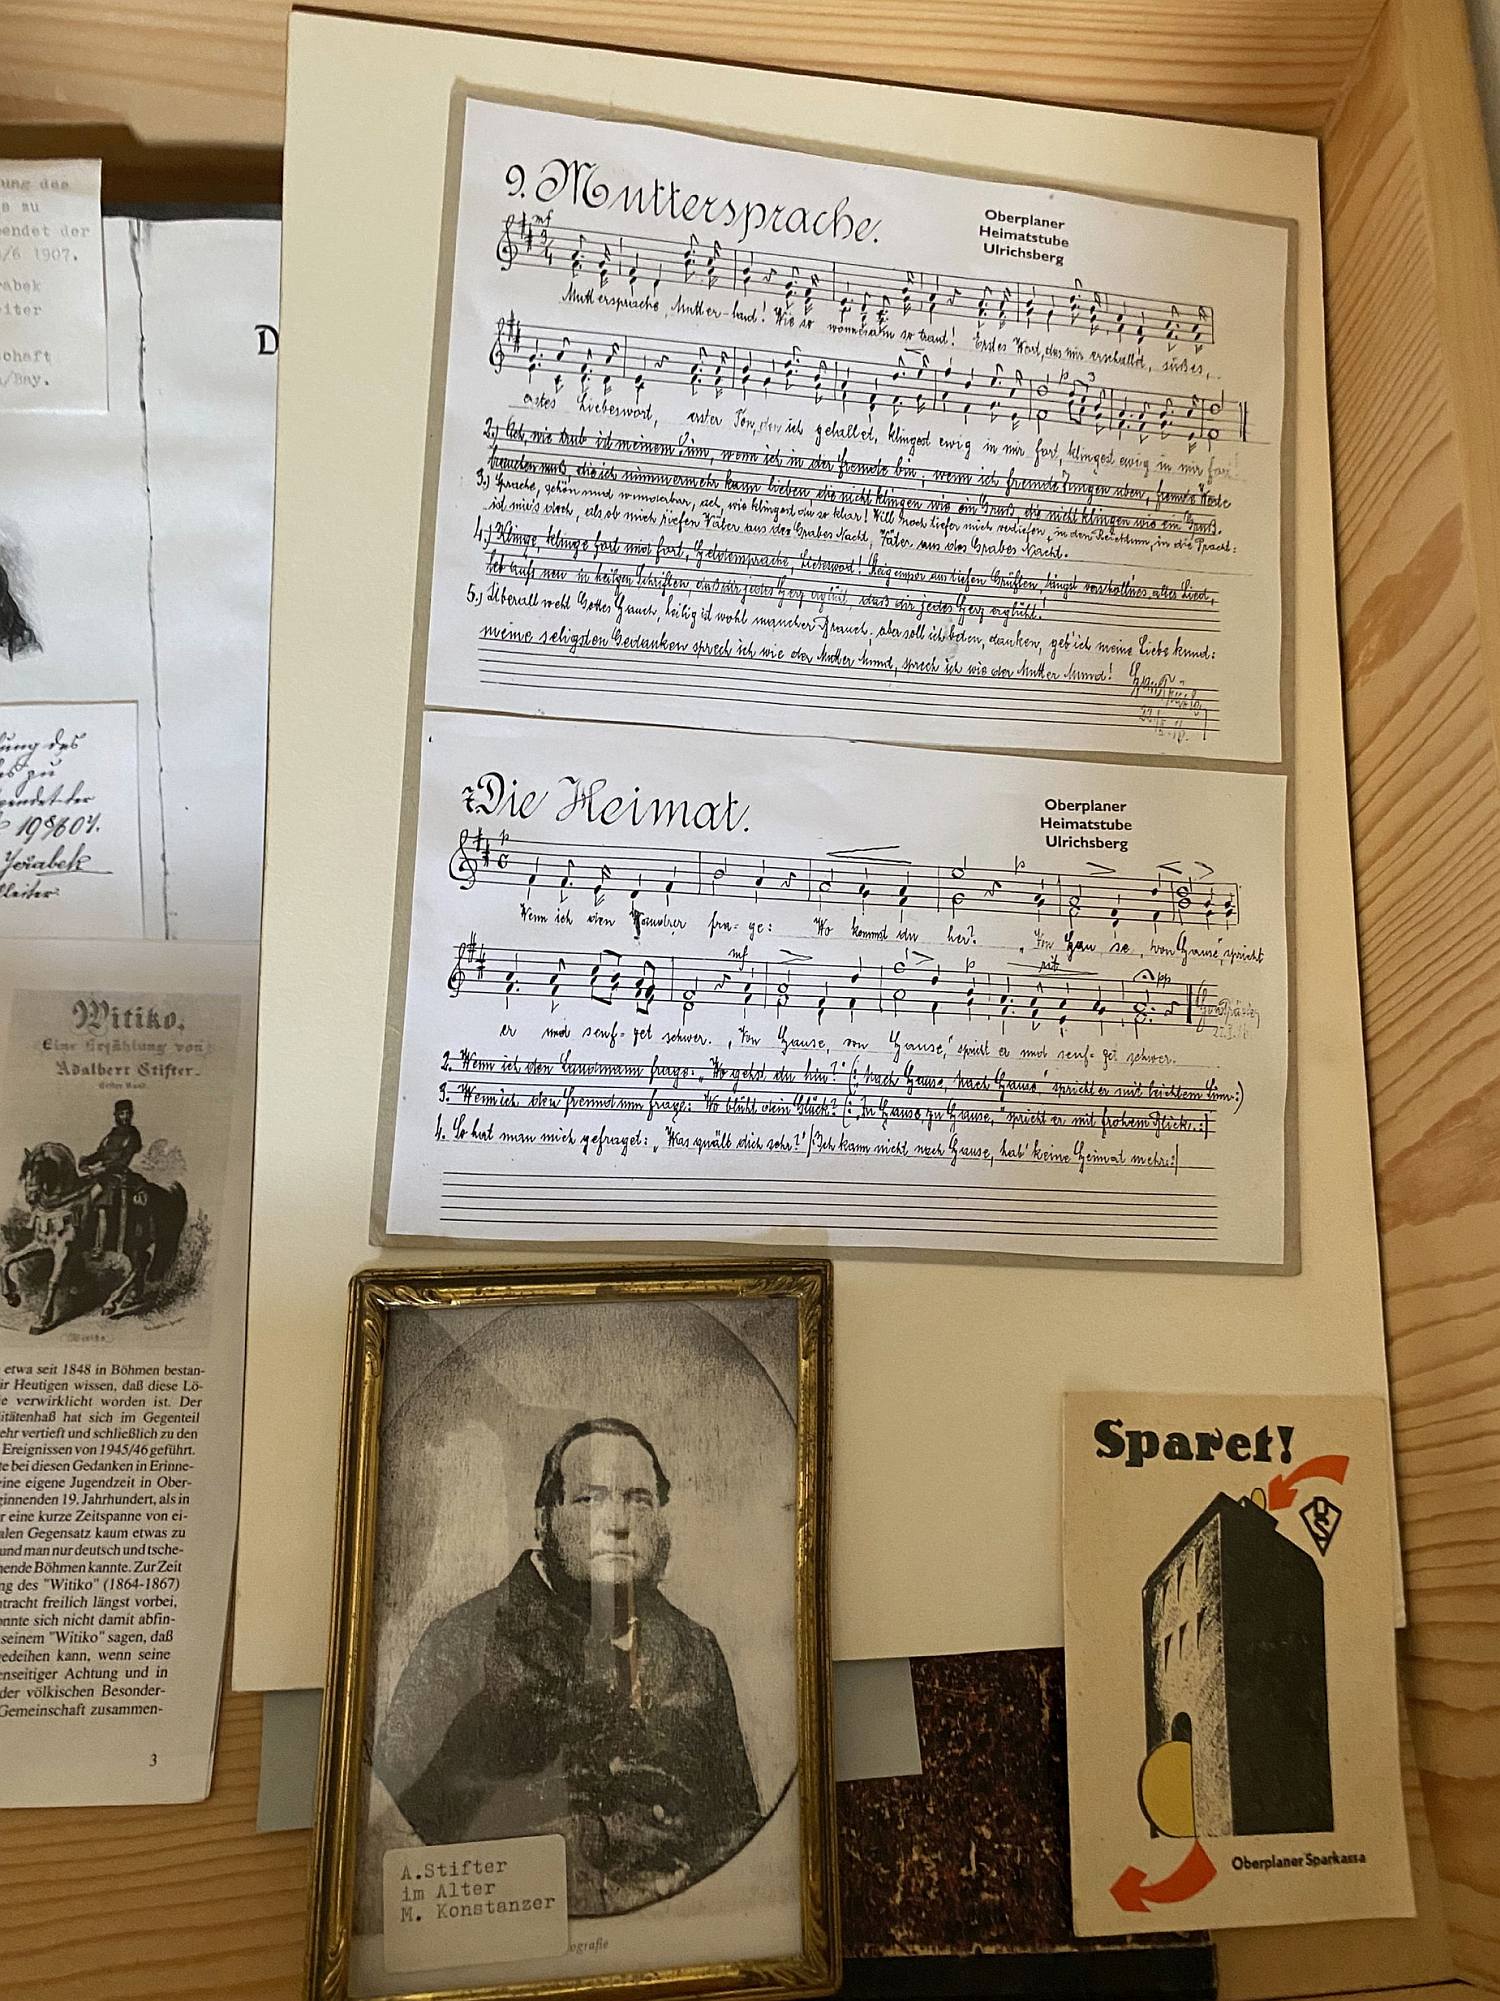 ung des
s zu
endet der
/6 1907.
abek
iter
chaft
/Bay.
D
lung des
es zu
pendet der
Yerabek
lleiter
Witiko.
Eine Erzählung von
Adalbert Stifter.
Erster Band.
etwa seit 1848 in Böhmen bestan-
ir Heutigen wissen, daß diese Lö-
e verwirklicht worden ist. Der
litätenhaß hat sich im Gegenteil
ehr vertieft und schließlich zu den
Ereignissen von 1945/46 geführt.
te bei diesen Gedanken in Erinne-
eine eigene Jugendzeit in Ober-
ginnenden 19. Jahrhundert, als in
r eine kurze Zeitspanne von ei-
alen Gegensatz kaum etwas zu
und man nur deutsch und tsche-
hende Böhmen kannte. Zur Zeit
ng des "Witiko" (1864-1867)
ntracht freilich längst vorbei,
onnte sich nicht damit abfin-
seinem "Witiko" sagen, daß
gedeihen kann, wenn seine
enseitiger Achtung und in
der völkischen Besonder-
Gemeinschaft zusammen-
3
9. Muttersprache.
Oberplaner
Heimatstube
Ulrichsberg
mf
Muttersprache, Mutter-laut! Wie so wonnesam so traut! Erstes Wort, das mir erschallet, süßes,
p 3
erstes Liebeswort, erster Ton, den ich gehallet, klingest ewig in mir fort, klingest ewig in mir fort
2.) Ach, wie trüb ist meinem Sinn, wenn ich in der Fremde bin, wenn ich fremde Zungen üben, fremde Worte
brauchen muß, die ich nimmermehr kann lieben, die nicht klingen wie ein Gruß, die nicht klingen wie ein Gruß.
3.) Sprache, schön und wunderbar, ach, wie klingest du so klar! Will noch tiefer mich vertiefen, in den Reichtum, in die Pracht:
ist mir's doch, als ob mich riefen Väter aus des Grabes Nacht, Väter aus des Grabes Nacht.
4.) Klinge, klinge fort und fort, Heldensprache, Liebeswort! Steig empor aus tiefen Grüften, längst verschollnes altes Lied,
leb aufs neu in heilgen Schriften, daß dir jedes Herz erglüht, daß dir jedes Herz erglüht!
5.) Überall weht Gottes Hauch, heilig ist wohl mancher Brauch; aber soll ich beten, danken, geb' ich meine Liebe kund:
meine seligsten Gedanken sprech ich wie der Mutter Mund, sprech ich wie der Mutter Mund!
7. Die Heimat.
Oberplaner
Heimatstube
Ulrichsberg
p p
Wenn ich den Wandrer fra-ge: Wo kommst du her? "Von Hau se, von Hause", spricht
mf p rit pp
er und seuf-zet schwer. "Von Hause, von Hause," spricht er und seuf-zet schwer.
2. Wenn ich den Landmann frage: "Wo gehst du hin?" (: "Nach Hause, nach Hause" spricht er mit leichtem Sinn:)
3. Wenn ich den Freund nun frage: Wo blüht dein Glück? (: "Zu Hause, zu Hause," spricht er mit frohem Blick.:)
4. So hat man mich gefraget: "Was quält dich sehr?" (: Ich kann nicht nach Hause, hab' keine Heimat mehr.:)
A.Stifter
im Alter
M. Konstanzer
ografie
Sparet!
Oberplaner Sparkassa